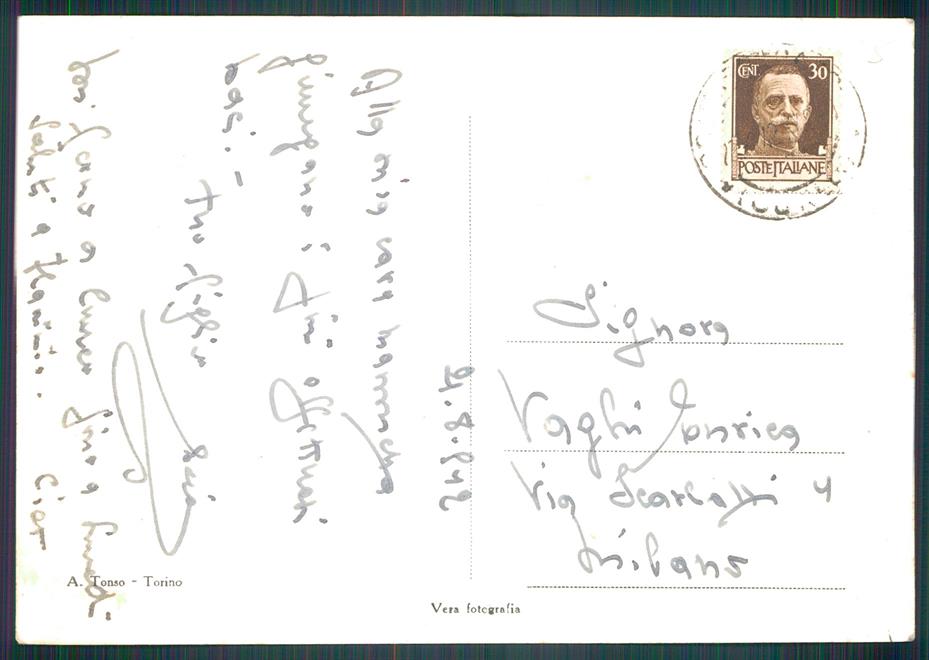 21.8.942
Alla mia cara mamma
giungano i più affettuosi
baci. -
tuo figlio
Qui sono a Cuneo fino a lunedì -
Saluti a
Ciao
CENT. 30
POSTE ITALIANE
Signora
Vaghi Enrica
Via Scarlatti 4
Milano
A. Tonso - Torino
Vera fotografia